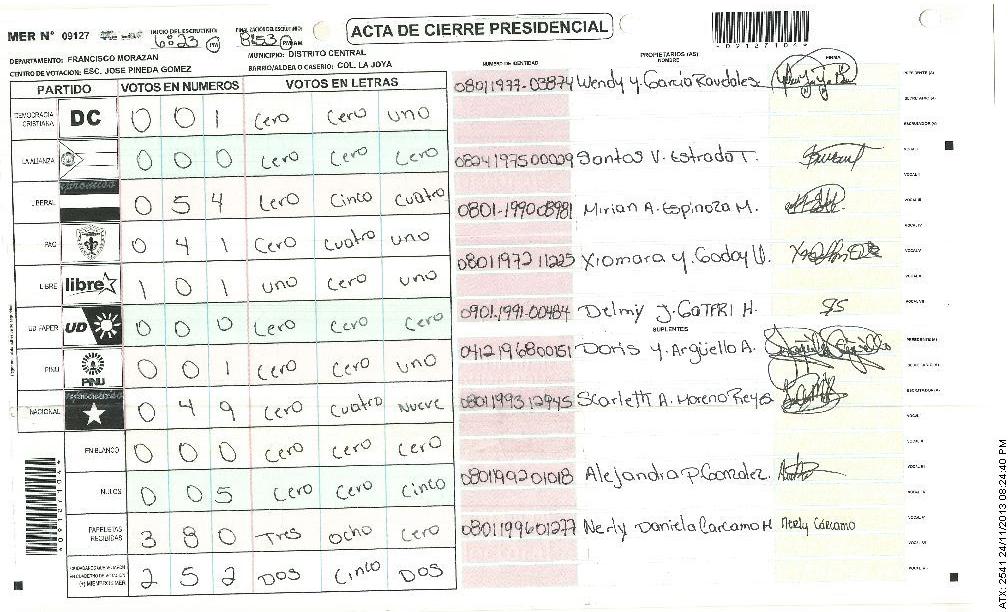 MER N° 09127
INICIO DEL ESCRUTINIO: 6:23 PM
8:53 PM
ACTA DE CIERRE PRESIDENCIAL
DEPARTAMENTO: FRANCISCO MORAZAN
MUNICIPIO: DISTRITO CENTRAL
CENTRO DE VOTACION: ESC. JOSE PINEDA GOMEZ
BARRIO/ALDEA O CASERIO: COL. LA JOYA
PARTIDO VOTOS EN NUMEROS VOTOS EN LETRAS
DEMOCRACIA CRISTIANA DC 0 0 1 Cero Cero uno
LA ALIANZA 0 0 0 Cero Cero Cero
LIBERAL 0 5 4 Cero Cinco Cuatro
PAC 0 4 1 Cero Cuatro uno
LIBRE libre 1 0 1 uno Cero uno
UD FAPER UD 0 0 0 Cero Cero Cero
PINU PINU 0 0 1 Cero Cero uno
NACIONAL 0 4 9 Cero Cuatro Nueve
EN BLANCO 0 0 0 Cero Cero Cero
NULOS 0 0 5 Cero Cero Cinco
PAPELETAS RECIBIDAS 3 8 0 Tres ocho Cero
2 5 2 DOS Cinco DOS
NUMERO DE IDENTIDAD
PROPIETARIOS (AS)
NOMBRE
FIRMA
08011977-03874 Wendy y. Garcia Raudales
0824197500029 Santos V. Estrada T.
0801-199008981 Mirian A. Espinoza M.
0801197211225 Xiomara y. Godoy V.
0901-1991-00484 Delmy J. H.
SUPLENTES
0412196800151 Doris y. Argüello A.
0801199312945 Scarleth A. Moreno Reyes
080199201018 Alejandra P Gonzalez
0801199601277 Nerly Daniela Carcamo H Nerly Cárcamo
ATX: 2541 24/11/2013 08:24:40 PM